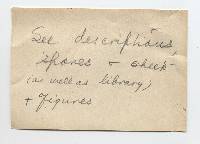 See descriptions,
spores + check
(as well as library)
+ figures